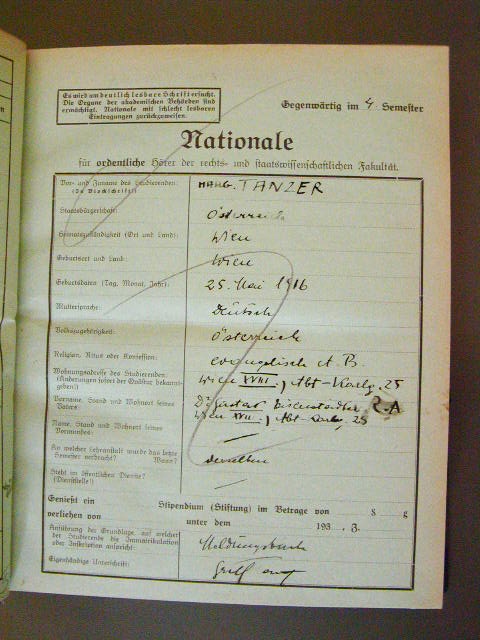 Es wird um deutlich lesbare Schrift ersucht.
Die Organe der akademischen Behörden sind
ermächtigt, Nationale mit schlecht lesbaren
Eintragungen zurückzuweisen.
Gegenwärtig im 4. Semester
Nationale
für ordentliche Hörer der rechts- und staatswissenschaftlichen Fakultät.
Vor- und Zuname des Studierenden: TANZER
(In Blockschrift)
Staatsbürgerschaft: Österreich
Heimatzuständigkeit (Ort und Land): Wien
Geburtsort und Land: Wien
Geburtsdaten (Tag, Monat, Jahr): 25. Mai 1916
Muttersprache: Deutsch
Volkszugehörigkeit: Österreich
Religion, Ritus oder Konfession: evangelisch A. B.
Wohnungsadresse des Studierenden: Wien XVIII., Abt-Karlg. 25
(Änderungen sofort der Quästur bekannt-
geben!)
Vorname, Stand und Wohnort seines Dr. Gustav R.A.
Vaters: Wien XVIII., Abt-Karlg. 25
Name, Stand und Wohnort seines
Vormundes: —
An welcher Lehranstalt wurde das letzte
Semester verbracht? Wann? derselben
Steht im öffentlichen Dienste? —
(Dienststelle!)
Genießt ein Stipendium (Stiftung) im Betrage von S g
verliehen von unter dem 193 , Z.
Anführung der Grundlage, auf welcher
der Studierende die Immatrikulation
oder Inskription anspricht: Meldungsbuch
Eigenhändige Unterschrift: